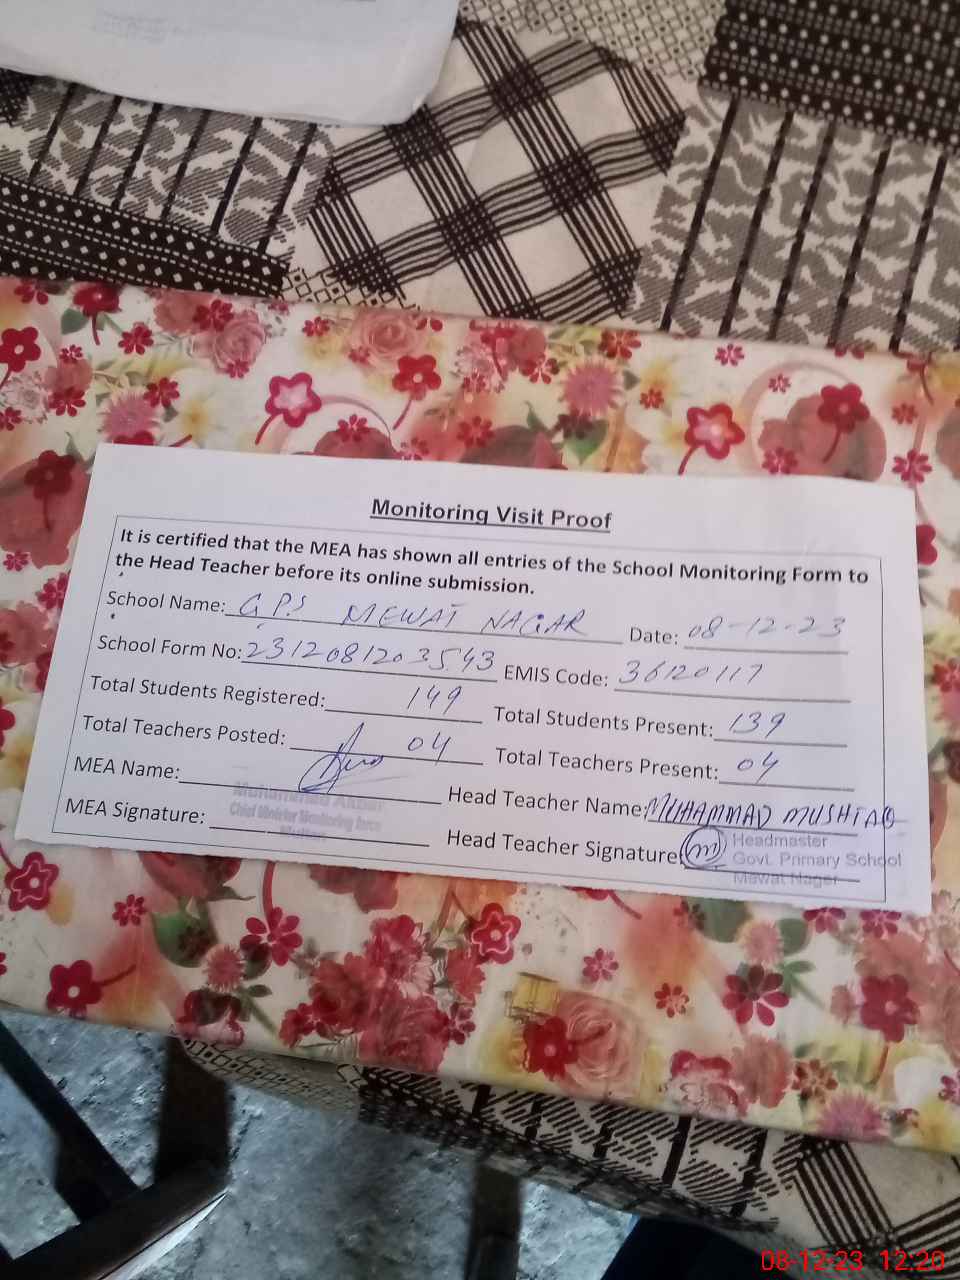 Monitoring Visit Proof
It is certified that the MEA has shown all entries of the School Monitoring Form to
the Head Teacher before its online submission.
School Name: G.P.S MEWAT NAGAR Date: 08-12-23
School Form No: 2312081203543 EMIS Code: 36120117
Total Students Registered: 149 Total Students Present: 139
Total Teachers Posted: 04 Total Teachers Present: 04
MEA Name: Head Teacher Name: MUHAMMAD MUSHTAQ
Muhammad Akbar
Chief Minister Monitoring Force
MEA Signature: Head Teacher Signature:
Headmaster
Govt. Primary School
Mewat Nager
08-12-23 12:20